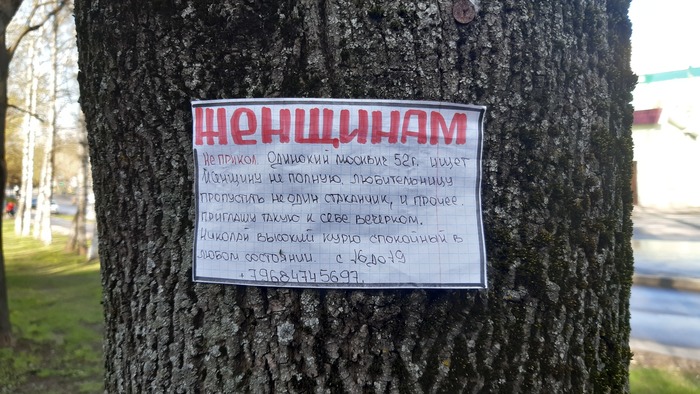 ЖЕНЩИНАМ
НЕ ПРИКОЛ. ОДИНОКИЙ МОСКВИЧ 52г. ИЩЕТ
ЖЕНЩИНУ НЕ ПОЛНУЮ. ЛЮБИТЕЛЬНИЦУ
ПРОПУСТИТЬ НЕ ОДИН СТАКАНЧИК, И ПРОЧЕЕ.
ПРИГЛАШУ ТАКУЮ К СЕБЕ ВЕЧЕРКОМ.
НИКОЛАЙ ВЫСОКИЙ КУРЮ СПОКОЙНЫЙ В
ЛЮБОМ СОСТОЯНИИ. С 16 ДО 19
+79684745697.